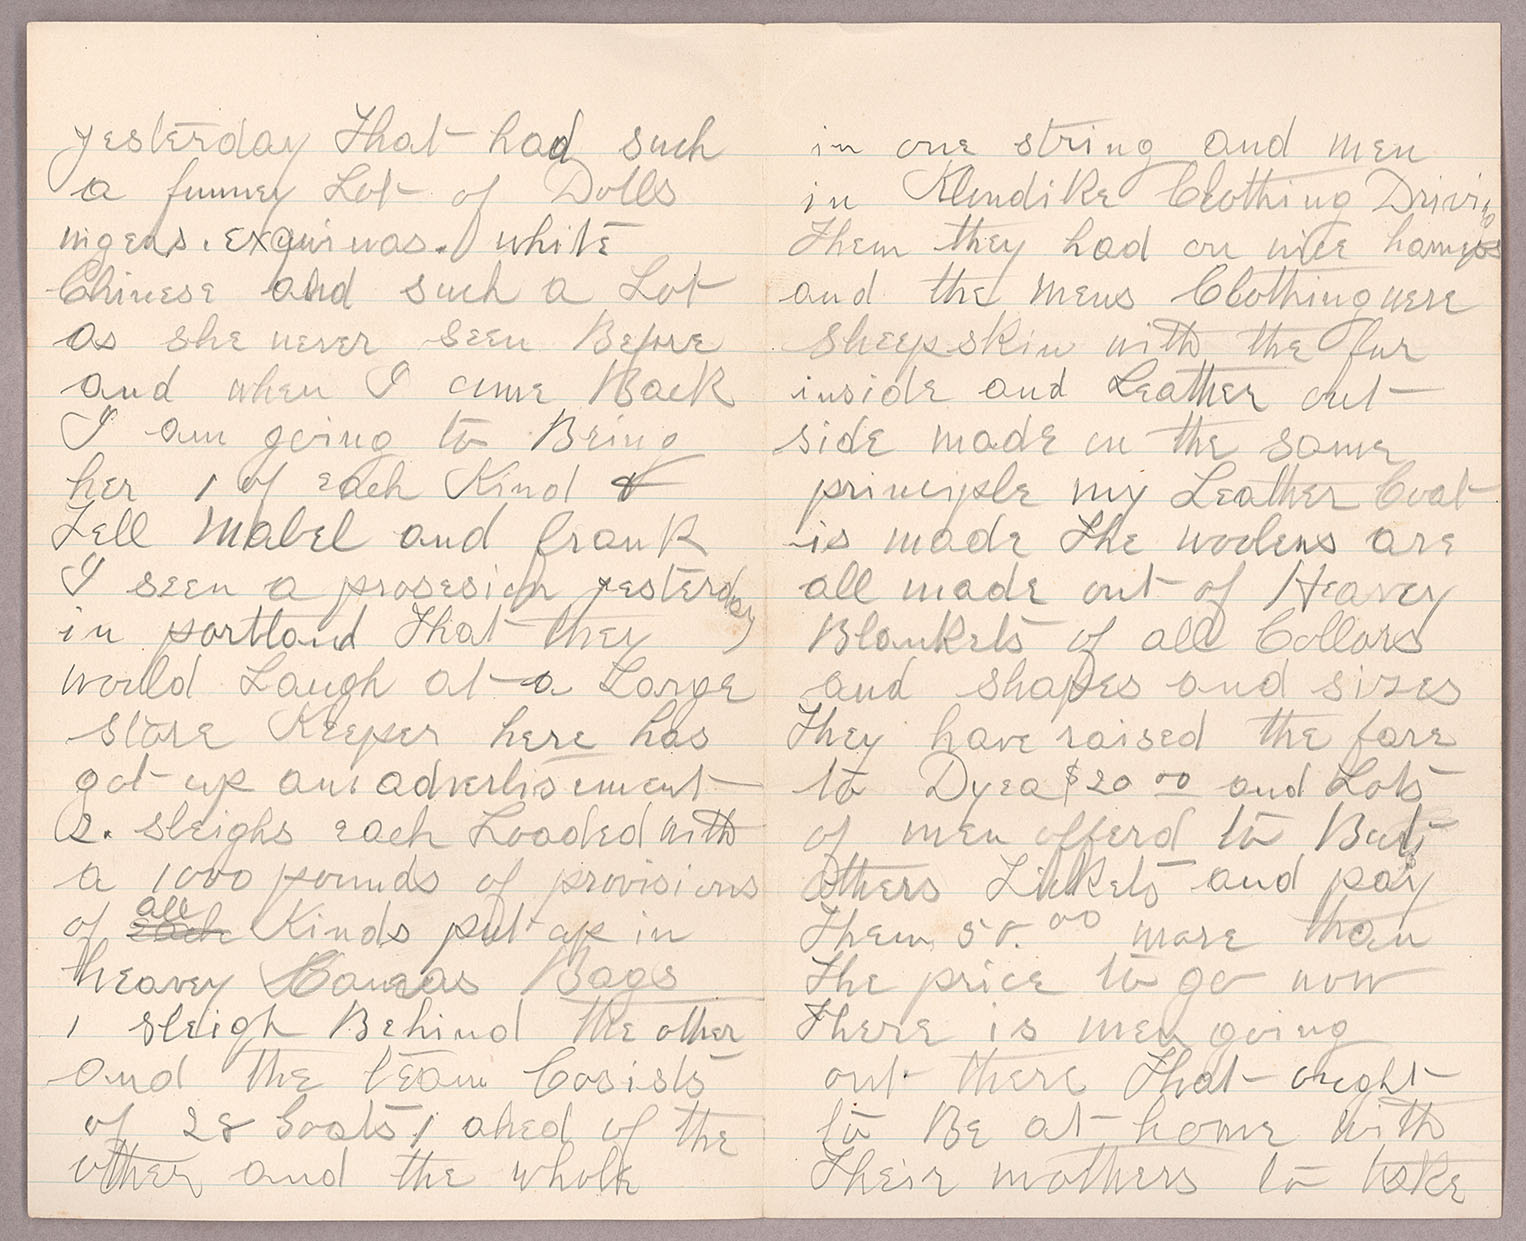 yesterday That had such
a funney Lot of Dolls
nigers. exquimas. white
Chinese and such a Lot
as she never seen Before
and when I come Back
I am going to Bring
her 1 of each Kind &
Tell Mabel and frank
I seen a prosesion yesterday
in portland That they
would Laugh at a Large
store Keeper here has
got up an advertisement
2. sleighs each Loaded with
a 1000 pounds of provisions
of each all Kinds put up in
heavey Canvas Bags
1 sleigh Behind the other
and the team Cosists
of 28 Goats 1 ahed of the
other and the whole
in one string and men
in Klendike Clothing Driving
Them they had on nice harness
and the mens Clothing were
sheepskin with the fur
inside and Leather out
side made on the same
principle my Leather Coat
is made The woolens are
all made out of Heavey
Blankets of all Collars
and shapes and sizes
They have raised the fare
to Dyea $20 00 and Lots
of men offerd to
others Tickets and pay
Them 50.00 more than
the price to go now
There is men going
out there That ought
to Be at home with
Their mothers to take